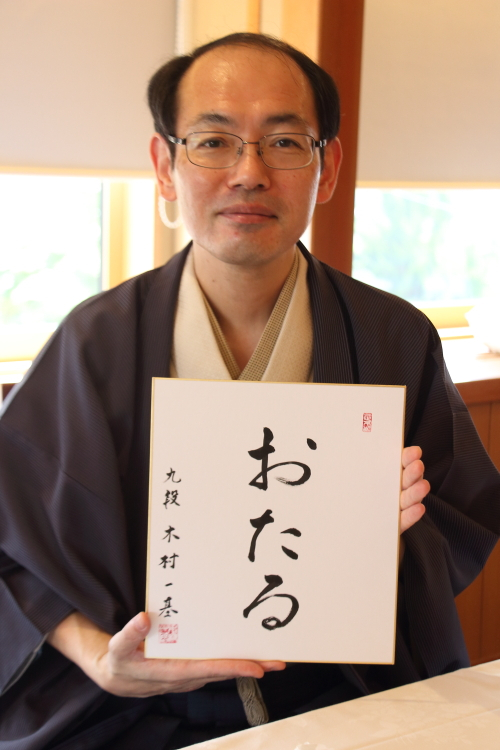 おたる
九段 木村一基